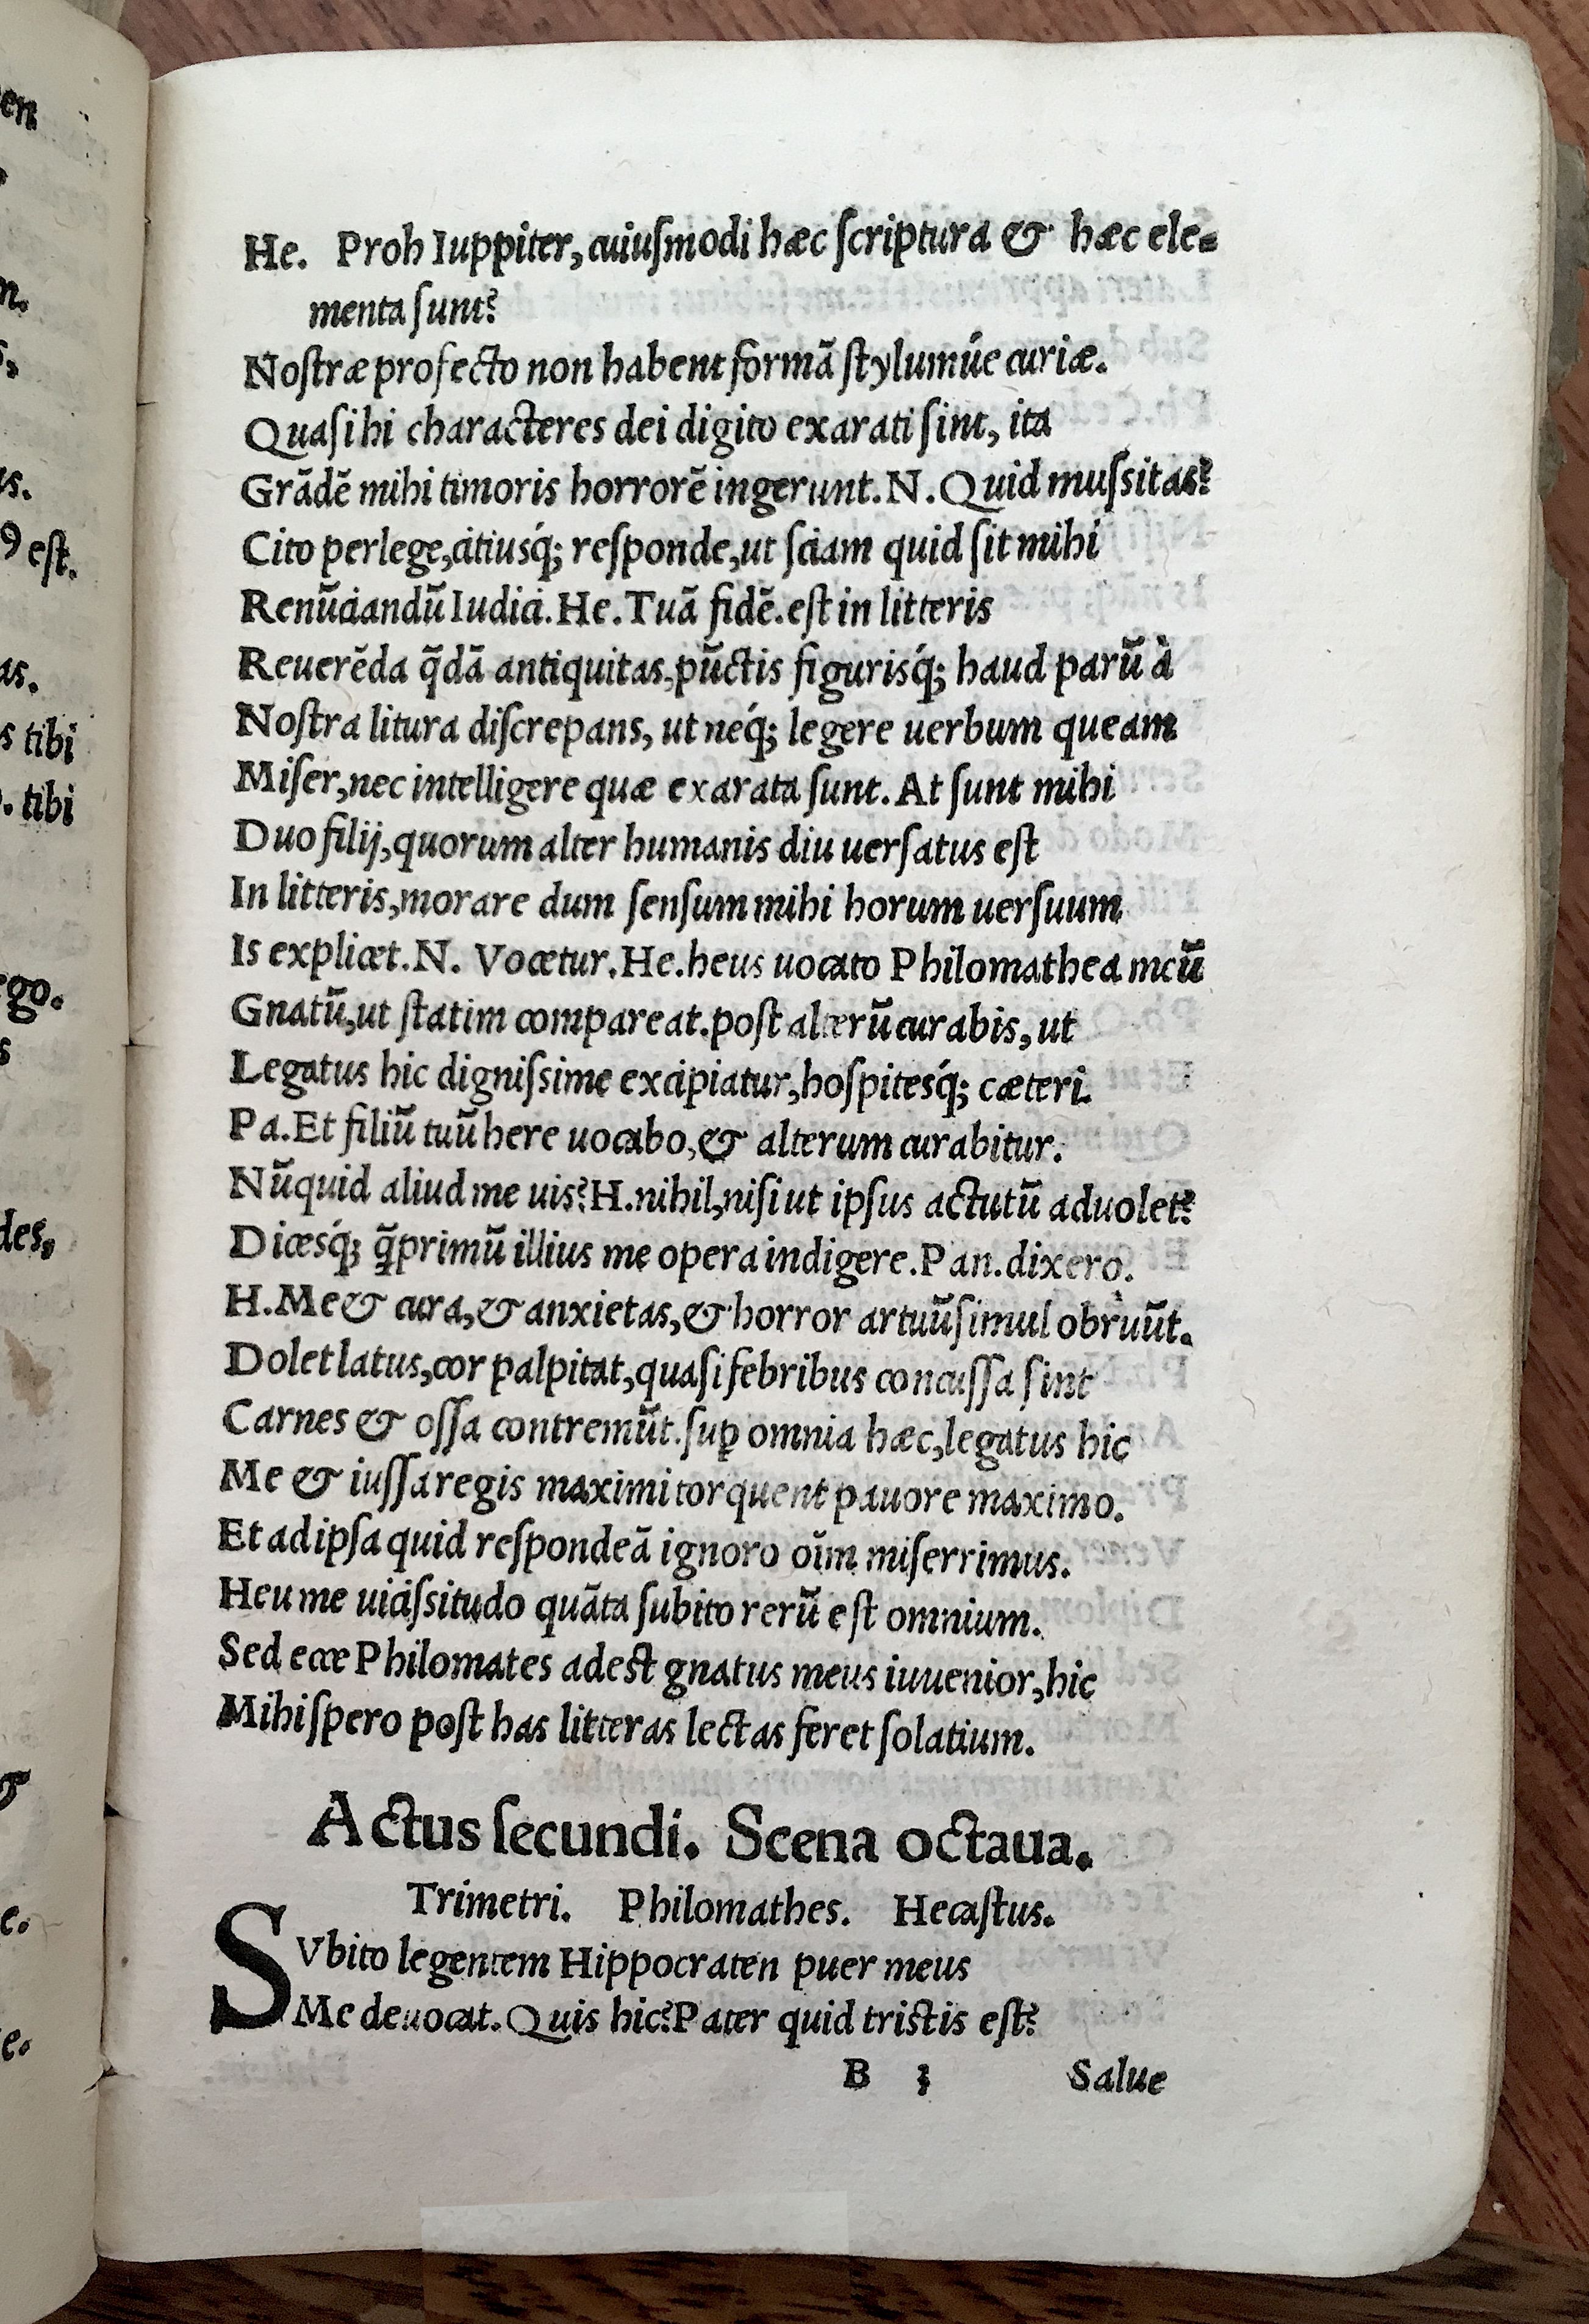 He. Proh Iuppiter, cuiuſmodi hæc ſcriptura & hæc ele=
menta ſunt?
Noſtræ profecto non habent formã ſtylumúe curiæ.
Quaſi hi characteres dei digito exarati ſint, ita
Grãdẽ mihi timoris horrorẽ ingerunt. N. Quid muſsitas?
Cito perlege, citiusq́; reſponde, ut ſciam quid ſit mihi
Renũciandũ Iudici. He. Tuã fidẽ. eſt in litteris
Reuerẽda q̃dã antiquitas, pũctis figurisq́; haud parũ à
Noſtra litura diſcrepans, ut neq́; legere uerbum queam
Miſer, nec intelligere quæ exarata ſunt. At ſunt mihi
Duo filij, quorum alter humanis diu uerſatus eſt
In litteris, morare dum ſenſum mihi horum uerſuum
Is explicet. N. Vocetur. He. heus uocato Philomathea meũ
Gnatũ, ut ſtatim compareat. poſt alterũ curabis, ut
Legatus hic digniſsime excipiatur, hoſpitesq́; cæteri.
Pa. Et filiũ tuũ here uocabo, & alterum curabitur.
Nũquid aliud me uis? H. nihil, niſi ut ipſus actutũ aduolet?
Dicesq́; q̃primũ illius me opera indigere. Pan. dixero.
H. Me & cura, & anxietas, & horror artuũ ſimul obruũt.
Dolet latus, cor palpitat, quaſi febribus concuſſa ſint
Carnes & oſſa contremũt. ſuꝑ omnia hæc, legatus hic
Me & iuſſa regis maximi torquent pauore maximo.
Et ad ipſa quid reſpondeã ignoro oĩm miſerrimus.
Heu me uiciſsitudo quãta ſubito rerũ eſt omnium.
Sed ecce Philomates adeſt gnatus meus iuuenior, hic
Mihi ſpero poſt has litteras lectas feret ſolatium.
Actus ſecundi. Scena octaua.
Trimetri. Philomathes. Hecaſtus.
SVbito legentem Hippocraten puer meus
Me deuocat. Quis hic? Pater quid triſtis eſt?
B 3 Salue
en
n.
us.
9 eſt.
as.
s tibi
. tibi
ego.
s
des,
&
e.
e.